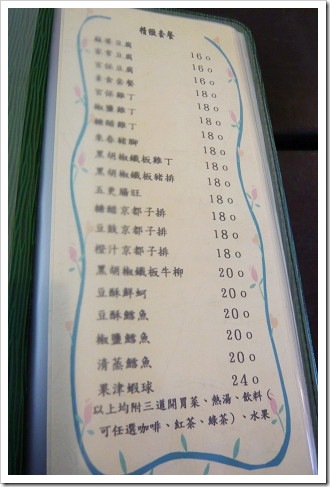 精緻套餐
麻婆豆腐 160
家常豆腐 160
宮保豆腐 160
素食套餐 180
宮保雞丁 180
椒鹽雞丁 180
糖醋雞丁 180
180
黑胡椒鐵板雞丁 180
黑胡椒鐵板豬排 180
五更腸旺 180
糖醋京都子排 180
豆豉京都子排 180
橙汁京都子排 180
黑胡椒鐵板牛柳 200
豆酥鮮蚵 200
豆酥鱈魚 200
椒鹽鱈魚 200
清蒸鱈魚 200
果津蝦球 240
以上均附三道開胃菜、熱湯、飲料(
可任選咖啡、紅茶、綠茶)、水果